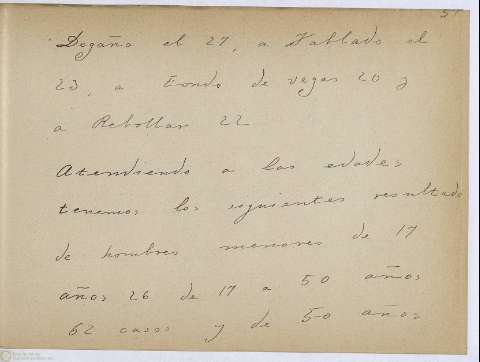 Dogaño el 27, a Tablado el
23, a Fondo de vegas 20 y
a Rebollar 22
Atendiendo a las edades
tenemos los siguientes resultado
de hombres menores de 17
años 26 de 17 a 50 años
62 casos y de 50 años